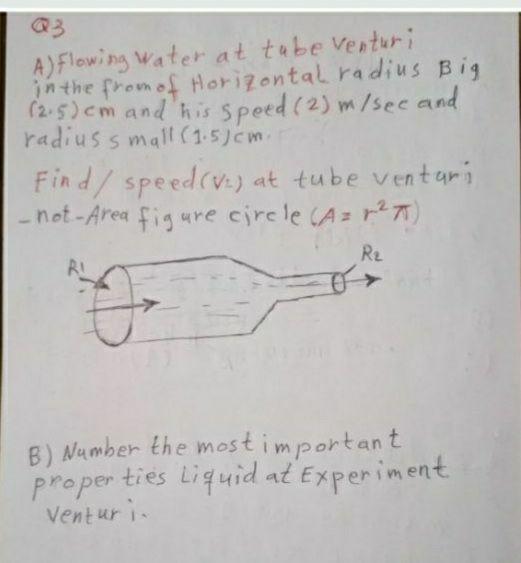 Q3
A) Flowing Water at tube Venturi
in the from of Horizontal radius Big
(2.5) cm and his speed (2) m/sec and
radius small (1.5) cm.
Find / speed (V2) at tube venturi
- not - Area figure circle (A = r²π)
R1
R2
B) Number the most important
proper ties Liquid at Experiment
Venturi.